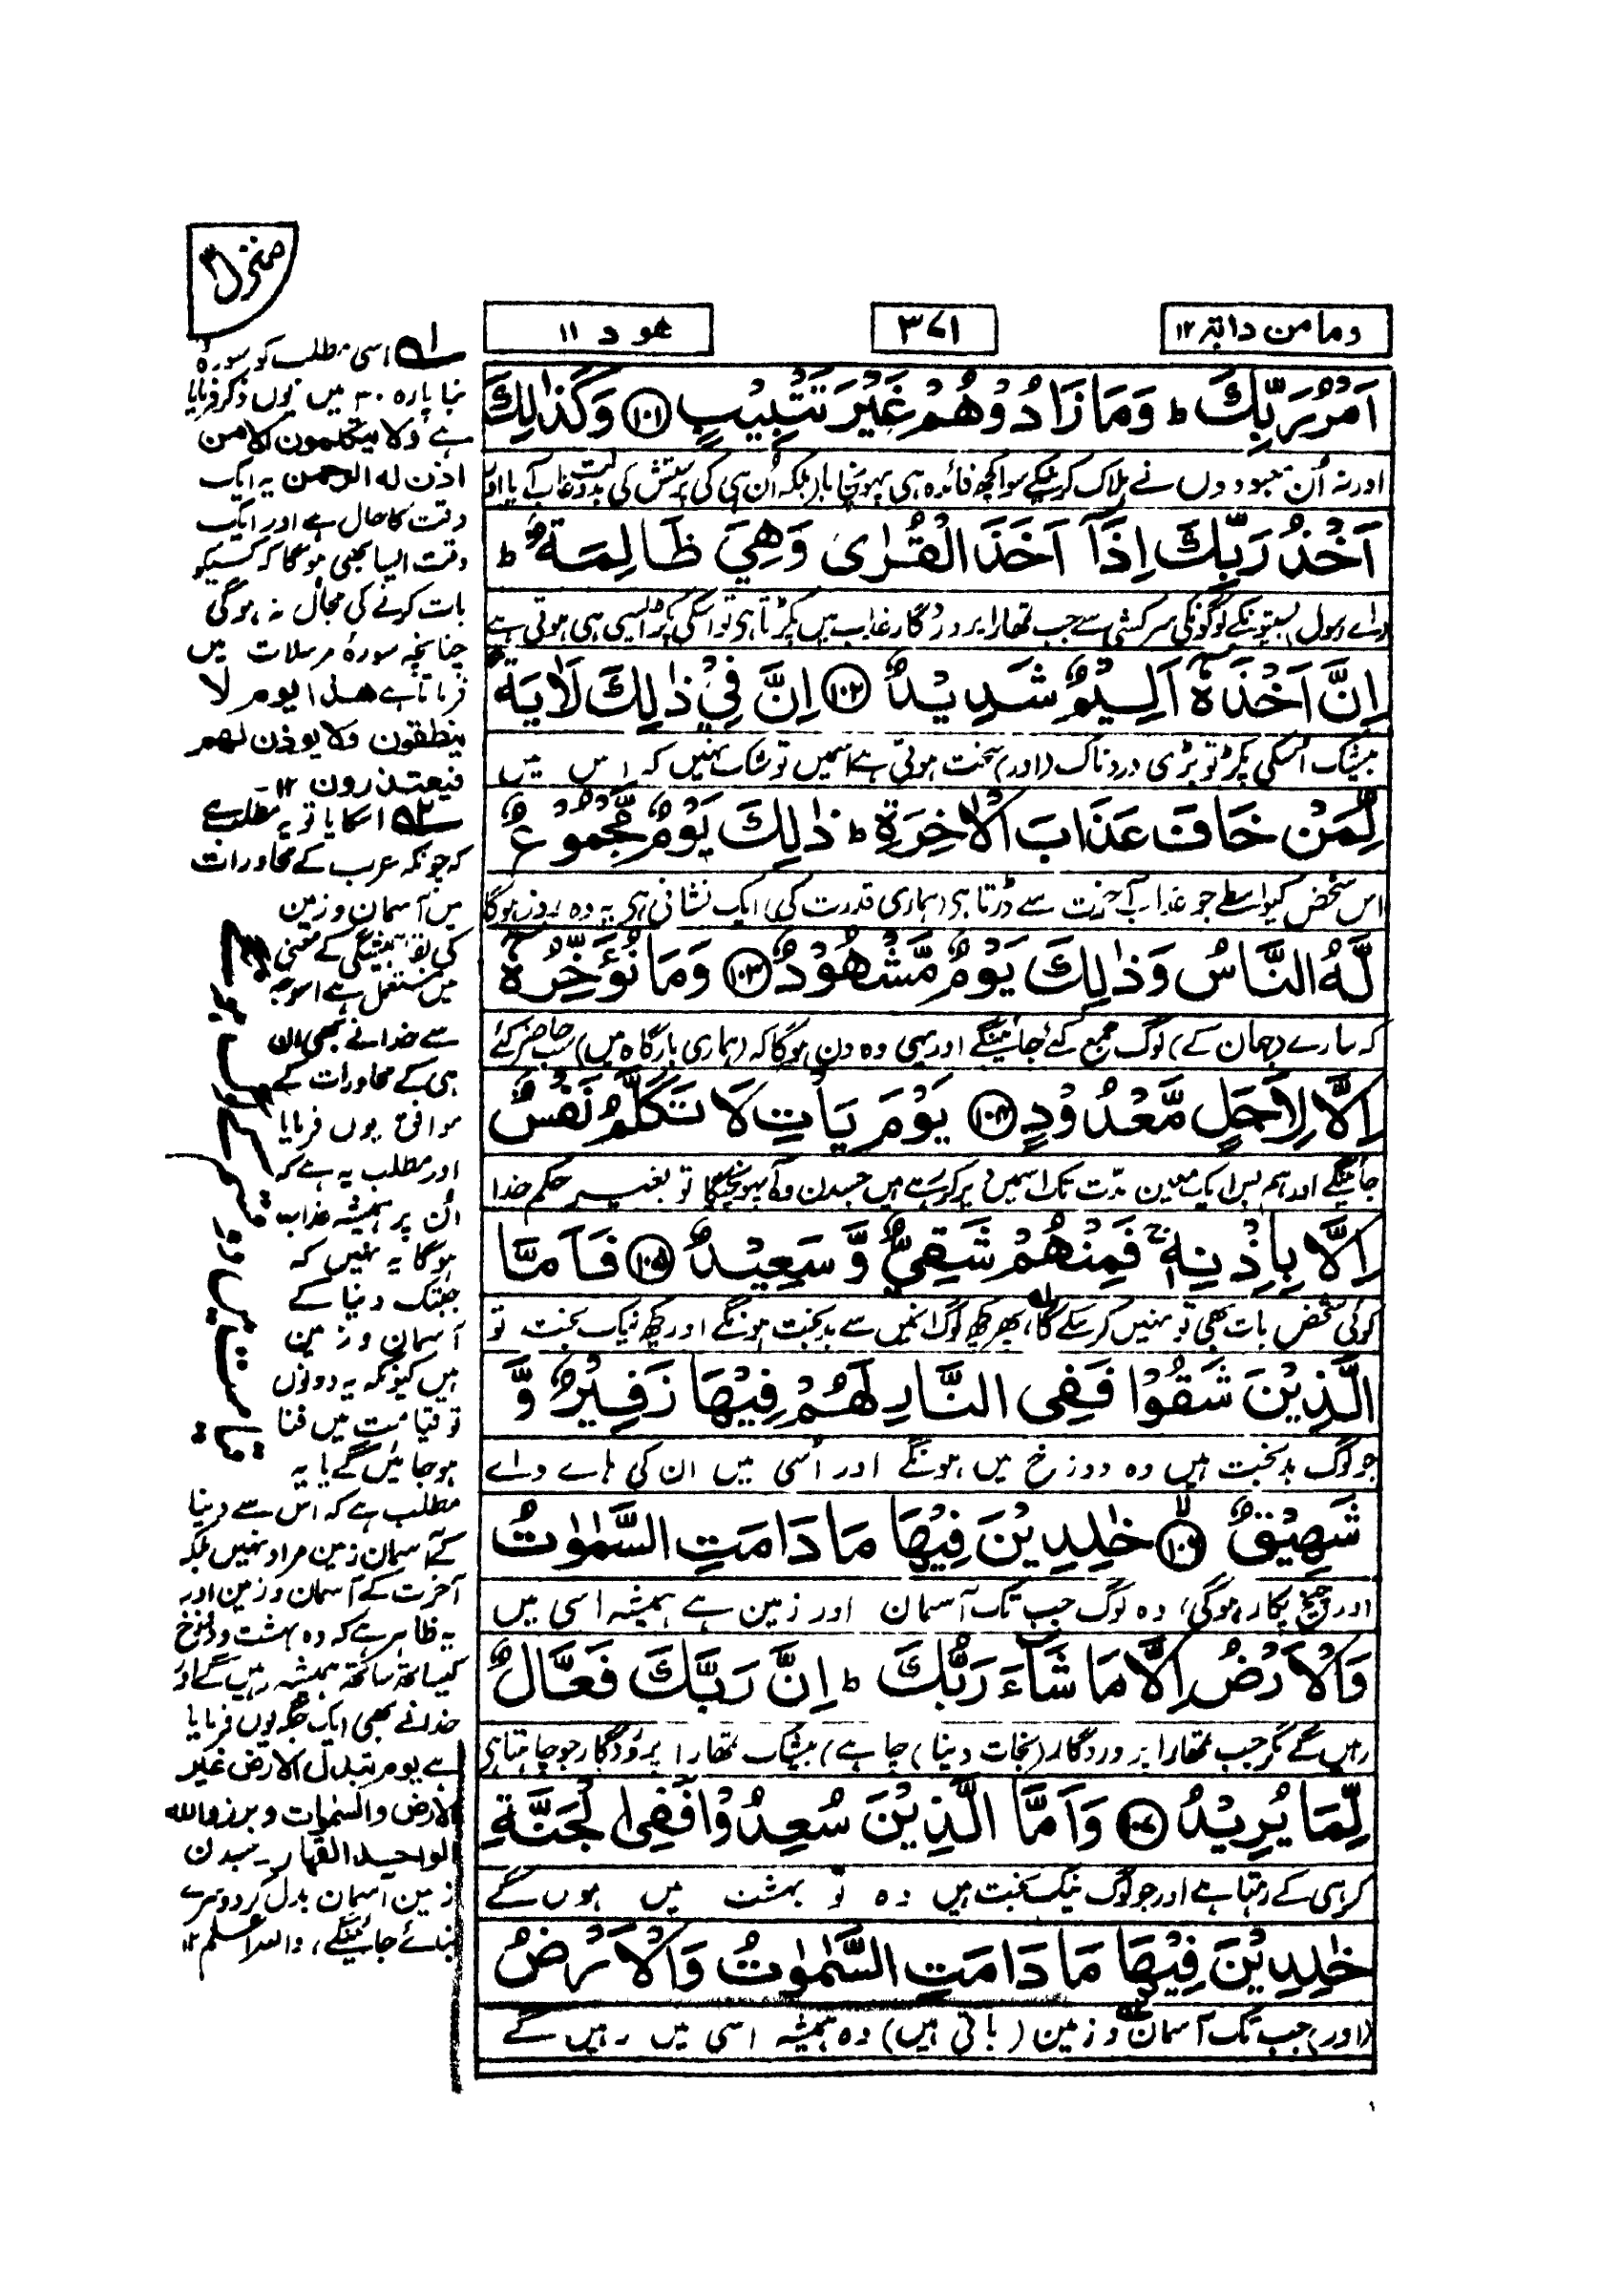 وما من دآبة ١٢
٣٧١
هود ١١
منزل ٣
اَمْرُ رَبِّكَ ط وَمَا زَادُوْهُمْ غَيْرَ تَتْبِيْبٍ ﴿١٠١﴾ وَكَذٰلِكَ
اور نہ اُن معبودوں نے ہلاک کرنیکے سوا کچھ فائدہ ہی پہونچایا (بلکہ اُن ہی کی پرستش کی بدولت عذاب آیا) اور
اَخْذُ رَبِّكَ اِذَآ اَخَذَ الْقُرٰى وَهِيَ ظَالِمَةٌ ط
(اے رسول) بستیونکے لوگونکی سرکشی سے جب تمھارا پروردگار عذاب میں پکڑتا ہی تو اسکی پکڑ ایسی ہی ہوتی ہے
اِنَّ اَخْذَهٗٓ اَلِيْمٌ شَدِيْدٌ ﴿١٠٢﴾ اِنَّ فِيْ ذٰلِكَ لَاٰيَةً
بیشک اسکی پکڑ تو بڑی دردناک (اور) سخت ہوتی ہے اسمیں تو شک نہیں کہ اس میں
لِّمَنْ خَافَ عَذَابَ الْاٰخِرَةِ ط ذٰلِكَ يَوْمٌ مَّجْمُوْعٌ
اس شخص کیواسطے جو عذاب آخرت سے ڈرتا ہی (ہماری قدرت کی) ایک نشانی ہی یہ وہ روز ہوگا
لَّهُ النَّاسُ وَذٰلِكَ يَوْمٌ مَّشْهُوْدٌ ﴿١٠٣﴾ وَمَا نُؤَخِّرُهٗٓ
کہ سارے (جہان کے) لوگ جمع کئے جائینگے اور یہی وہ دن ہوگا کہ (ہماری بارگاہ میں) سب حاضر کئے
اِلَّا لِاَجَلٍ مَّعْدُوْدٍ ﴿١٠٤﴾ يَوْمَ يَاْتِ لَا تَكَلَّمُ نَفْسٌ
جائینگے اور ہم بس ایک معین مدّت تک اسمیں دیر کر رہے ہیں جسدن وہ آپہونچیگا تو بغیر حکم خدا
اِلَّا بِاِذْنِهٖ ج فَمِنْهُمْ شَقِيٌّ وَّسَعِيْدٌ ﴿١٠٥﴾ فَاَمَّا
کوئی شخص بات بھی تو نہیں کر سکے گا، پھر کچھ لوگ انمیں سے بدبخت ہونگے اور کچھ نیک بخت تو
الَّذِيْنَ شَقُوْا فَفِى النَّارِ لَهُمْ فِيْهَا زَفِيْرٌ وَّ
جو لوگ بدبخت ہیں وہ دوزخ میں ہونگے اور اُسی میں ان کی ہاے واے
شَهِيْقٌ ﴿١٠٦﴾ خٰلِدِيْنَ فِيْهَا مَا دَامَتِ السَّمٰوٰتُ
اور چیخ پکار ہوگی، وہ لوگ جب تک آسمان اور زمین ہے ہمیشہ اسی میں
وَالْاَرْضُ اِلَّا مَا شَآءَ رَبُّكَ ط اِنَّ رَبَّكَ فَعَّالٌ
رہیں گے مگر جب تمھارا پروردگار (نجات دینا) چاہے) بیشک تمھارا پروردگار جو چاہتا ہی
لِّمَا يُرِيْدُ ﴿١٠٧﴾ وَاَمَّا الَّذِيْنَ سُعِدُوْا فَفِى الْجَنَّةِ
کر ہی کے رہتا ہے اور جو لوگ نیک بخت ہیں وہ تو بہشت میں ہوں گے
خٰلِدِيْنَ فِيْهَا مَا دَامَتِ السَّمٰوٰتُ وَالْاَرْضُ
(اور) جب تک آسمان و زمین (باقی ہیں) وہ ہمیشہ اسی میں رہیں گے
لہ اسی مطلب کو سورۂ
نبا پارہ ٣٠ میں یوں ذکر فرمایا
ہے ولا یتکلمون الا من
اذن له الرحمن یہ ایک
وقت کا حال ہے اور ایک
وقت ایسا بھی ہوگا کہ کسیکو
بات کرنے کی مجال نہ ہوگی
چنانچہ سورۂ مرسلات میں
فرماتا ہے هذا یوم لا
ینطقون ولا یوذن لهم
فیعتذرون ١٢۔
٢ہ اسکا یا تو یہ مطلب ہے
کہ چونکہ عرب کے محاورات
میں آسمان و زمین
کی بقا ہمیشگی کے معنی
میں مستعمل ہے اسوجہ
سے خدا نے بھی ان
ہی کے محاورات کے
موافق یوں فرمایا
اور مطلب یہ ہے کہ
اُن پر ہمیشہ عذاب
ہوگا یہ نہیں کہ
جبتک دنیا کے
آسمان و زمین
ہیں کیونکہ یہ دونوں
تو قیامت میں فنا
ہو جائیں گے یا یہ
مطلب ہے کہ اس سے دنیا
کے آسمان زمین مراد نہیں بلکہ
آخرت کے آسمان و زمین اور
یہ ظاہر ہے کہ وہ بہشت و دوزخ
کیساتھ ساتھ ہمیشہ رہیں گے اور
خدا نے بھی ایک جگہ یوں فرمایا
ہے یوم تبدل الارض غیر
الارض والسموات وبرزوا لله
الواحد القهار۔ جسدن
زمین آسمان بدل کر دوسرے
بنائے جائینگے، واللہ اعلم ١٢